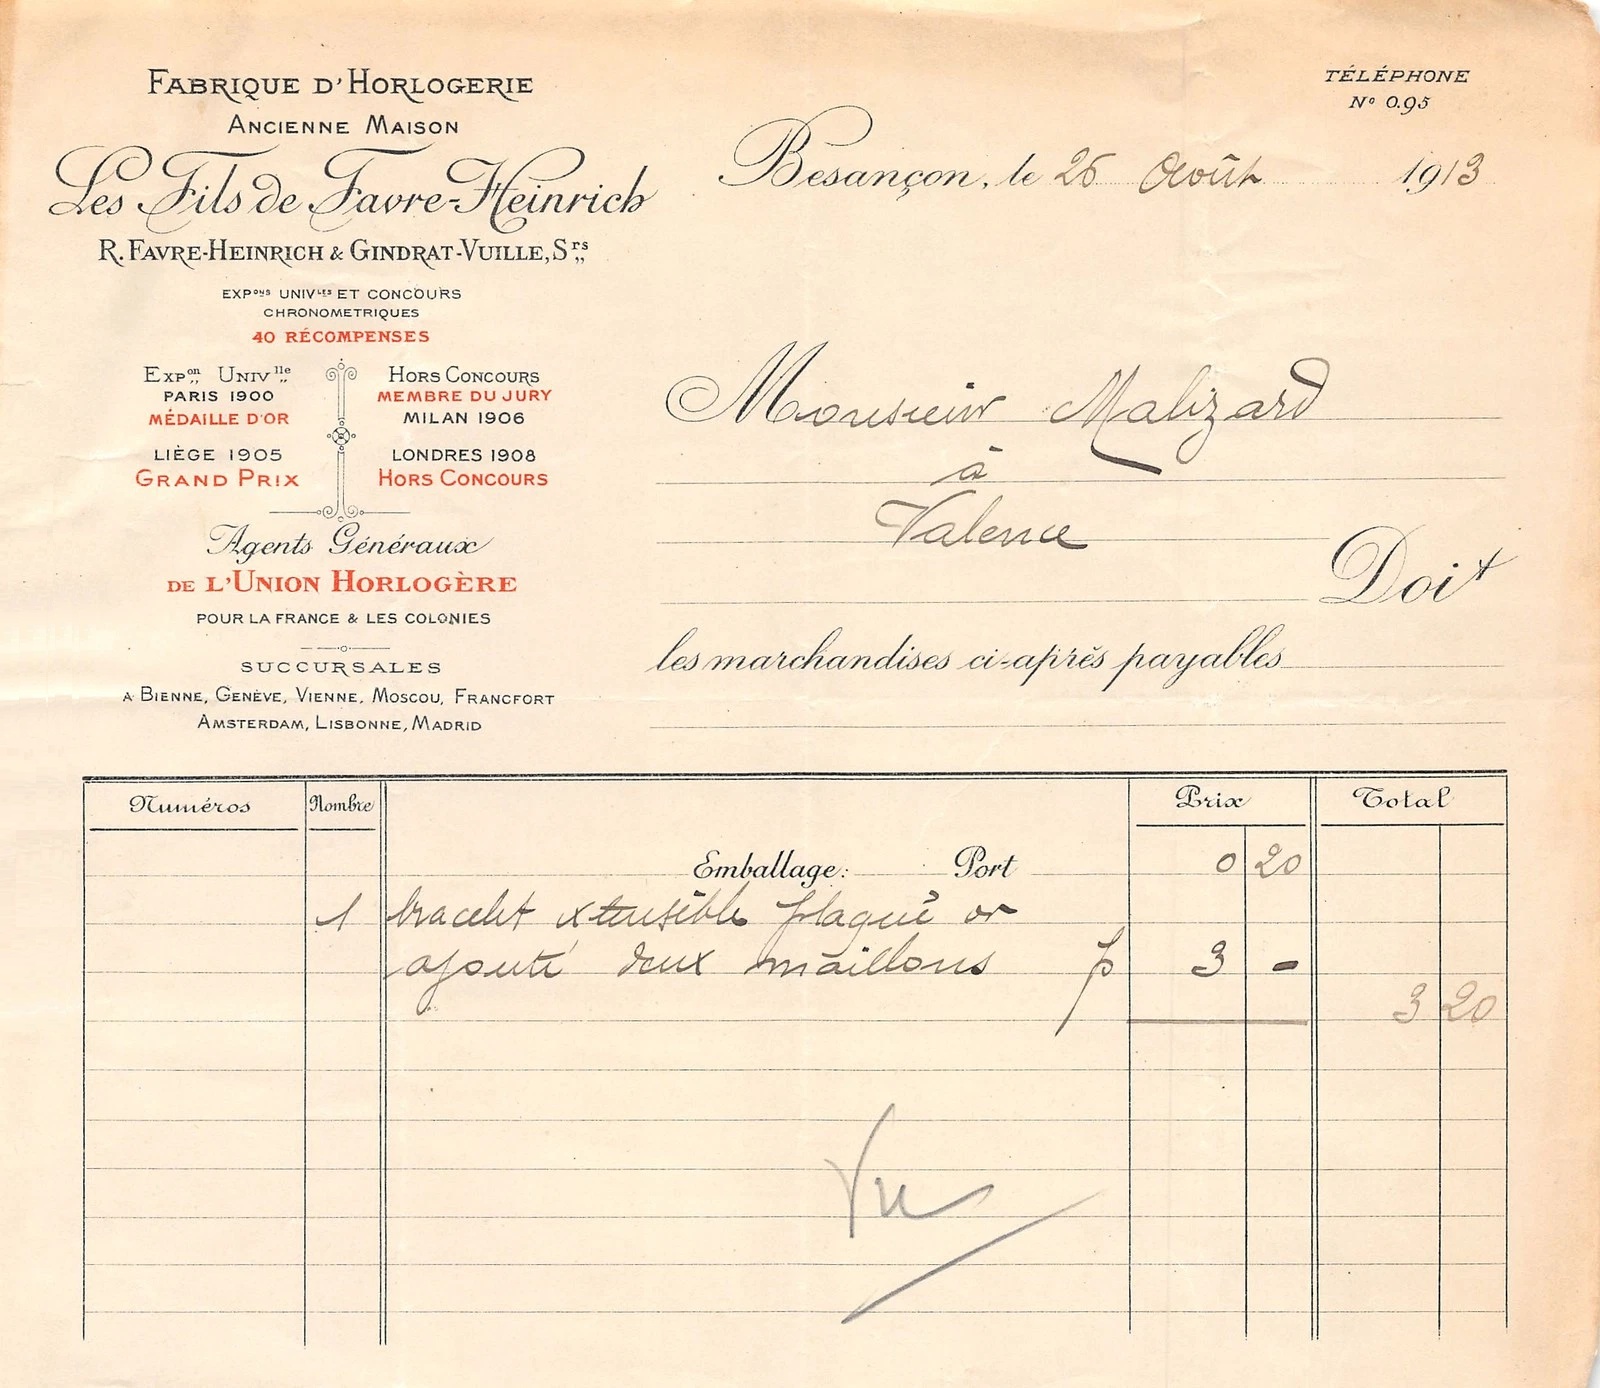 FABRIQUE D'HORLOGERIE
ANCIENNE MAISON
Les Fils de Favre-Heinrich
R. FAVRE-HEINRICH & GINDRAT-VUILLE, Srs
EXPons UNIVles ET CONCOURS
CHRONOMETRIQUES
40 RÉCOMPENSES
EXPon UNIVlle
PARIS 1900
MÉDAILLE D'OR
LIÈGE 1905
GRAND PRIX
HORS CONCOURS
MEMBRE DU JURY
MILAN 1906
LONDRES 1908
HORS CONCOURS
Agents Généraux
DE L'UNION HORLOGÈRE
POUR LA FRANCE & LES COLONIES
SUCCURSALES
A BIENNE, GENÈVE, VIENNE, MOSCOU, FRANCFORT
AMSTERDAM, LISBONNE, MADRID
TÉLÉPHONE
No 0.95
Besançon, le 26 Août 1913
Monsieur Malizard
à
Valence
Doit
les marchandises ci-après payables
Numéros Nombre Prix Total
Emballage: Port 0 20
1 bracelet extensible plaqué or
ajouté deux maillons 3 -
3 20
Vu